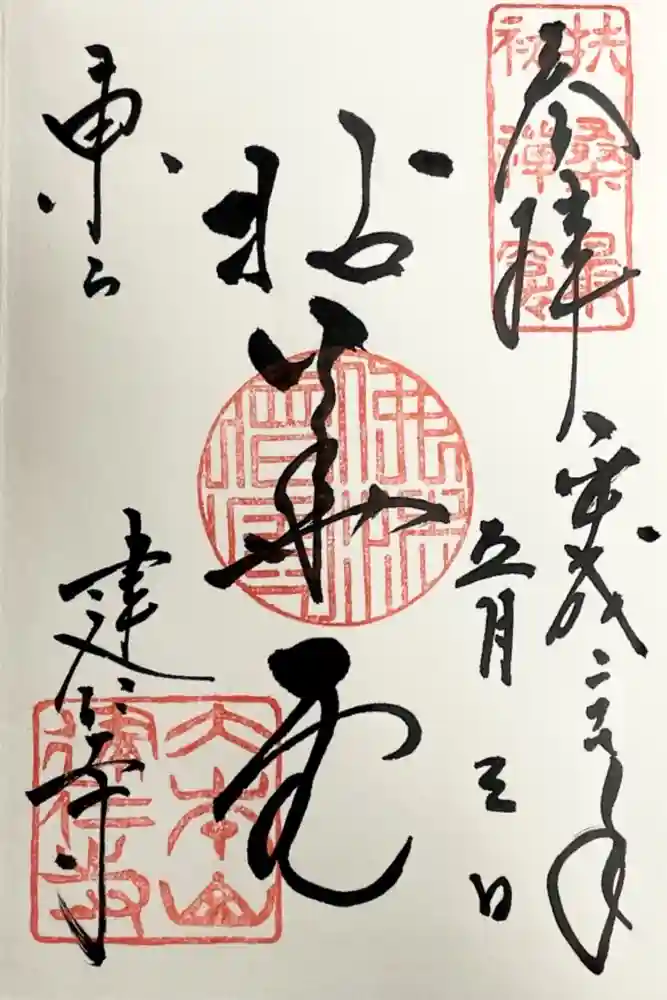 扶桑最
初禪窟
奉拝
平成二 年
五月三日
拈華堂
東山
建仁寺
大本山
建仁寺